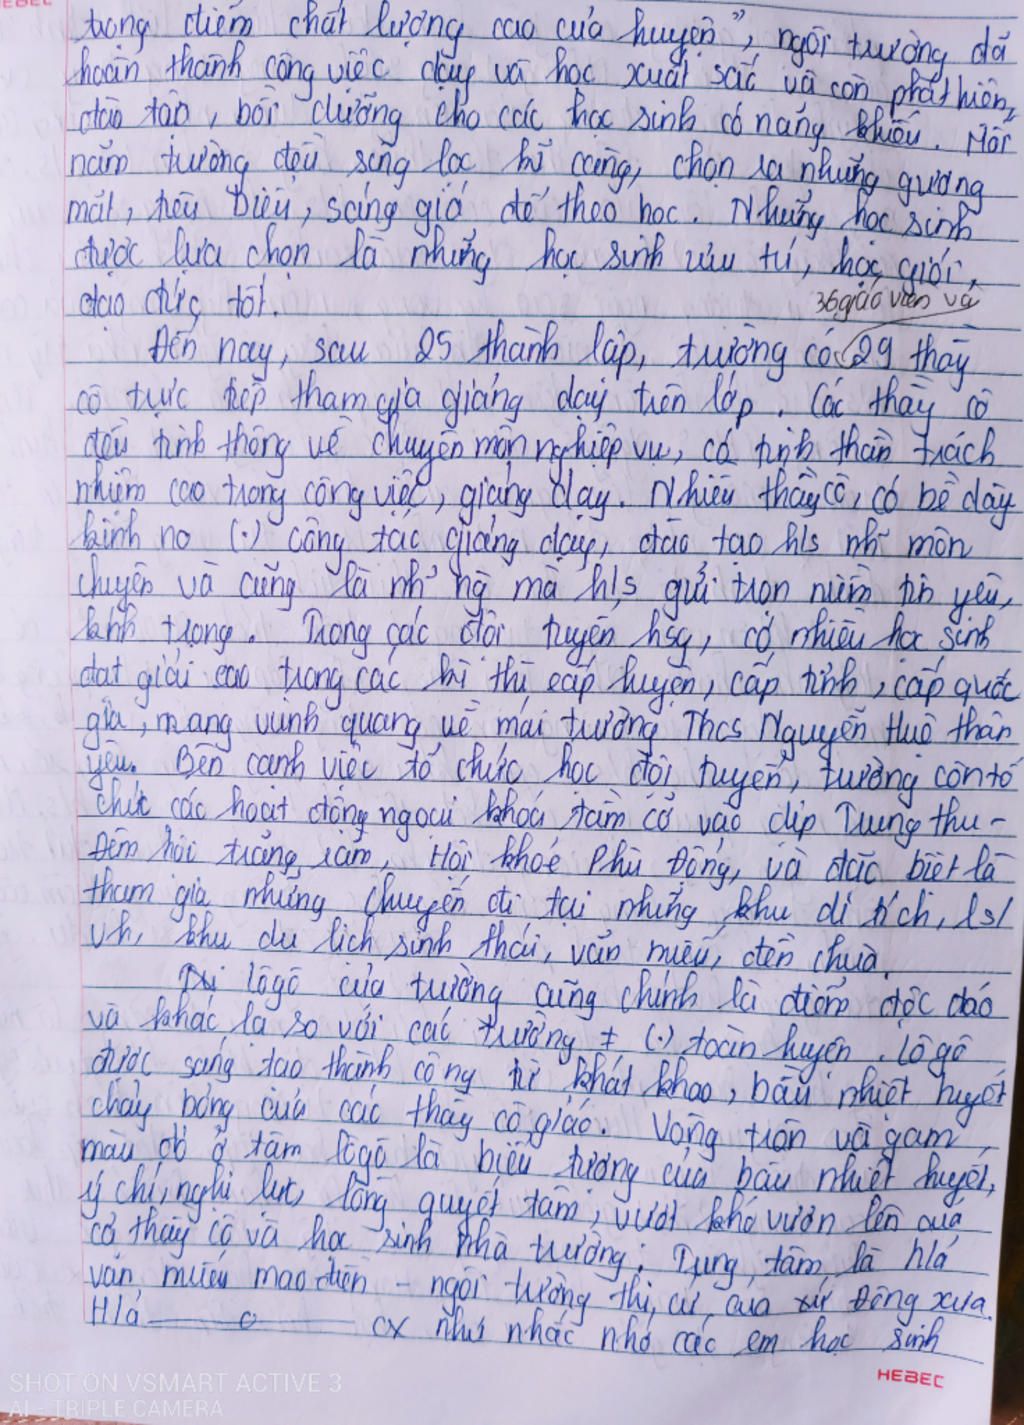 HEBEC
trọng điểm chất lượng cao của huyện", ngôi trường đã
hoàn thành công việc dạy và học xuất sắc và còn phát hiện,
đào tạo, bồi dưỡng cho các học sinh có năng khiếu. Mỗi
năm trường đều sàng lọc kĩ càng, chọn ra những gương
mặt, tiêu biểu, sáng giá để theo học. Những học sinh
được lựa chọn là những học sinh ưu tú, học giỏi,
đạo đức tốt.
36 giáo viên và
Đến nay, sau 25 thành lập, trường có 29 thầy
cô trực tiếp tham gia giảng dạy trên lớp. Các thầy cô
đều tinh thông về chuyên môn nghiệp vụ, có tinh thần trách
nhiệm cao trong công việc, giảng dạy. Nhiều thầy cô, có bề dày
kinh no (.) công tác giảng dạy, đào tạo h/s nh~ môn
chuyên và cũng là nh~ ng mà h/s gửi trọn niềm tin yêu,
kính trọng. Trong các đội tuyển hsg, có nhiều học sinh
đạt giải cao trong các kì thi cấp huyện, cấp tỉnh, cấp quốc
gia, mang vinh quang về mái trường Thcs Nguyễn Huệ thân
yêu. Bên cạnh việc tổ chức học đội tuyển, trường còn tổ
chức các hoạt động ngoại khoá tầm cỡ vào dịp Trung thu -
Đêm hội trăng rằm, Hội khoẻ Phù Đổng, và đặc biệt là
tham gia những chuyến đi tại những khu di tích, ls/
vh, khu du lịch sinh thái, văn miếu, đền chùa.
lôgô của trường cũng chính là điểm độc đáo
và khác lạ so với các trường ≠ (.) toàn huyện. Lôgô
được sáng tạo thành công từ khát khao, bầu nhiệt huyết
cháy bỏng của các thầy cô giáo. Vòng tròn và gam
màu đỏ ở tâm lôgô là biểu tượng của bầu nhiệt huyết,
ý chí, nghị lực, lòng quyết tâm, vượt khó vươn lên của
cả thầy cô và học sinh nhà trường; Trung tâm là h/ả
văn miếu mao điền - ngôi trường thi cử của xứ Đông xưa.
H/ả ——o—— cx như nhắc nhở các em học sinh
HEBEC
SHOT ON VSMART ACTIVE 3
AI - TRIPLE CAMERA